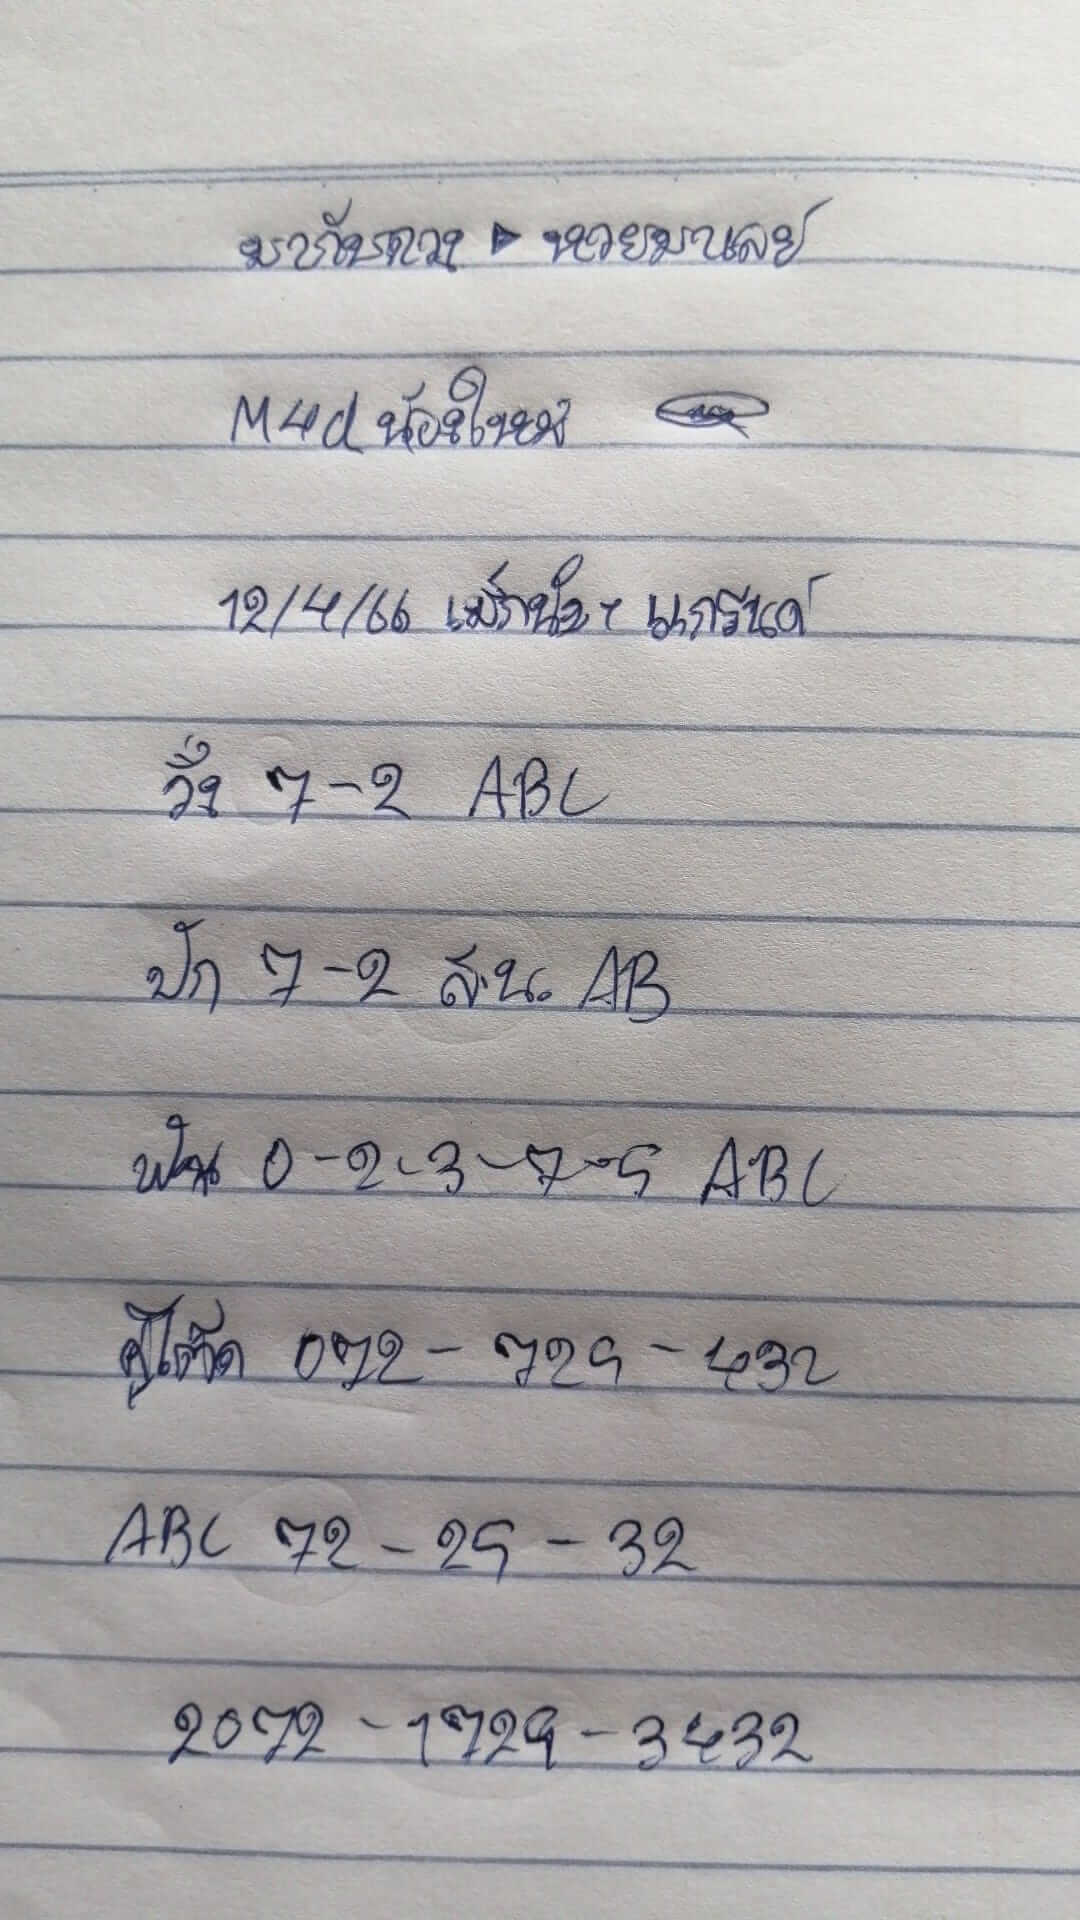 มากับดวง ▶ หวยมาเลย์
M4d น้องใหม่
12/4/66 แม็กนั่ม - แกรนด์
วิ่ง 7-2 ABC
ปัก 7-2 ส.น. AB
ฟัน 0-2-3-7-9 ABC
คู่โต๊ด 072 - 729 - 432
ABC 72 - 29 - 32
2072 - 1729 - 3432